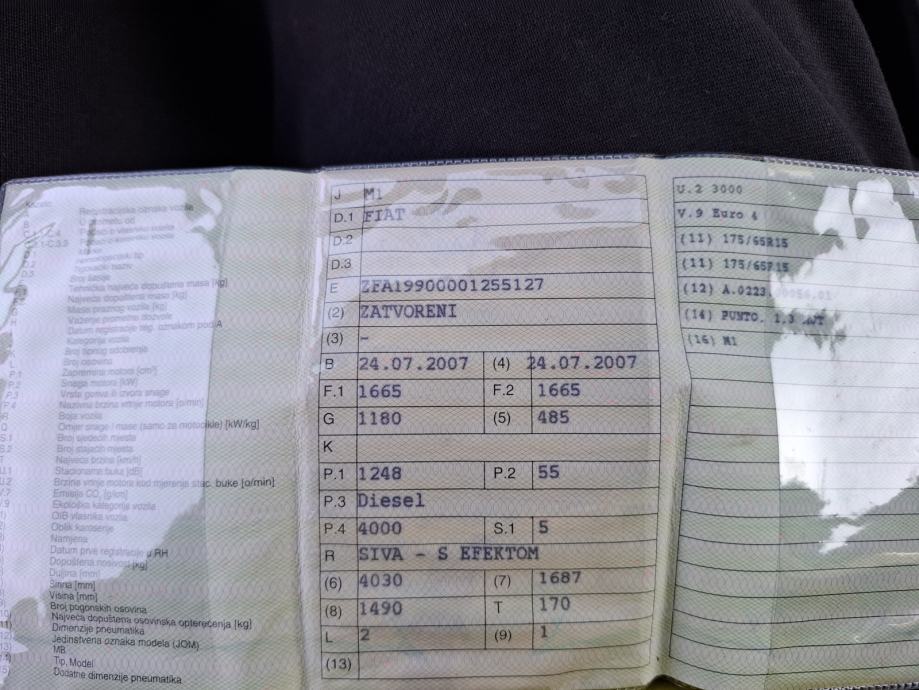 Registracijska oznaka vozila
Broj šasije
Tehnička najveća dopuštena masa [kg]
Najveća dopuštena masa [kg]
Masa praznog vozila [kg]
Važenje prometne dozvole
Datum registracije reg. oznakom pod A
Kategorija vozila
Broj tipnog odobrenja
Broj osovina
Zapremina motora [cm³]
P.2 Snaga motora [kW]
P.3 Vrsta goriva ili izvora snage
P.4 Nazivna brzina vrtnje motora [o/min]
R Boja vozila
Q Omjer snage i mase (samo za motocikle) [kW/kg]
S.1 Broj sjedećih mjesta
S.2 Broj stajaćih mjesta
T Najveća brzina [km/h]
U.1 Stacionarna buka [dB]
U.2 Brzina vrtnje motora kod mjerenja stac. buke [o/min]
V.7 Emisija CO₂ [g/km]
V.9 Ekološka kategorija vozila
OIB vlasnika vozila
Oblik karoserije
Namjena
Datum prve registracije u RH
Dopuštena nosivost [kg]
Dužina [mm]
Širina [mm]
Visina [mm]
Broj pogonskih osovina
Najveća dopuštena osovinska opterećenja [kg]
Dimenzije pneumatika
Jedinstvena oznaka modela (JOM)
MB
Tip, Model
Dodatne dimenzije pneumatika
J M1
D.1 FIAT
D.2
D.3
E ZFA19900001255127
(2) ZATVORENI
(3) -
B 24.07.2007 (4) 24.07.2007
F.1 1665 F.2 1665
G 1180 (5) 485
K
P.1 1248 P.2 55
P.3 Diesel
P.4 4000 S.1 5
R SIVA - S EFEKTOM
(6) 4030 (7) 1687
(8) 1490 T 170
L 2 (9) 1
(13)
U.2 3000
V.9 Euro 4
(11) 175/65R15
(11) 175/65R15
(12) A.0223.
(14) PUNTO, 1,3
(16) M1